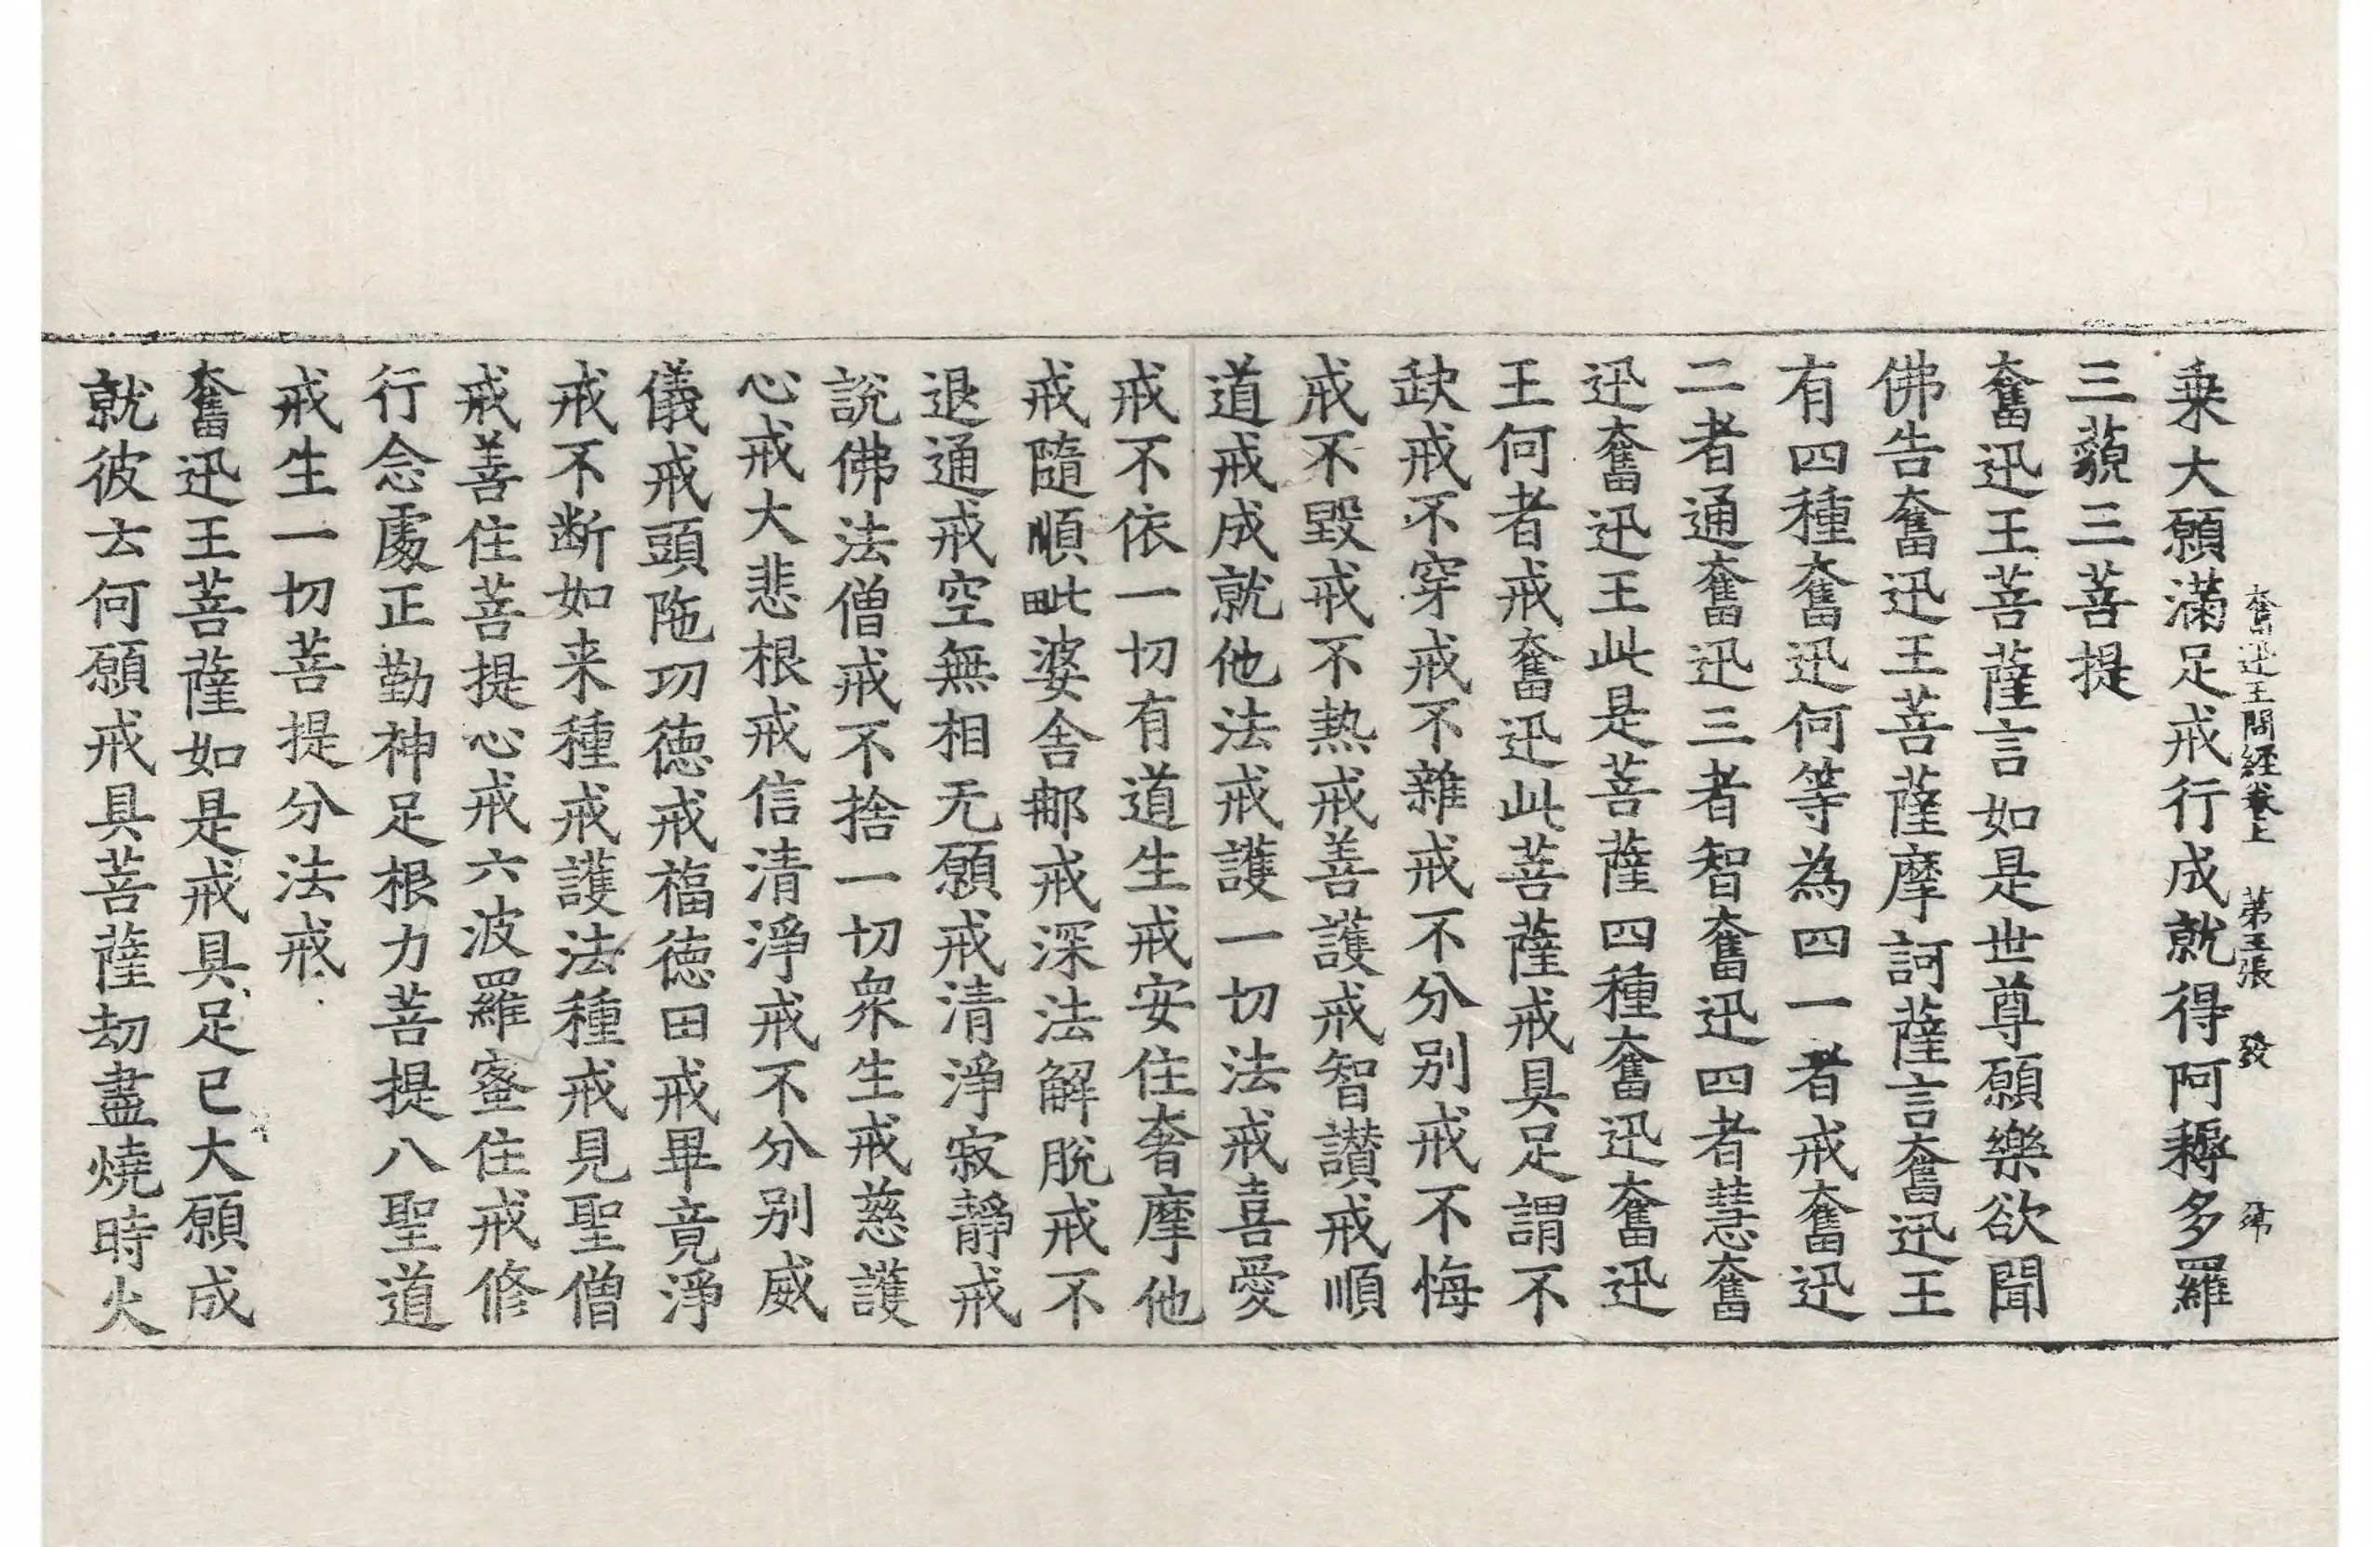 奮迅王問經卷上 第五張 發
乗大願滿足戒行成就得阿耨多羅
三藐三菩提
奮迅王菩薩言如是世尊願樂欲聞
佛告奮迅王菩薩摩訶薩言奮迅王
有四種奮迅何等為四一者戒奮迅
二者通奮迅三者智奮迅四者慧奮
迅奮迅王此是菩薩四種奮迅奮迅
王何者戒奮迅此菩薩戒具足謂不
缼戒不穿戒不雜戒不分別戒不悔
戒不毀戒不熱戒善護戒智讃戒順
道戒成就他法戒護一切法戒喜愛
戒不依一切有道生戒安住奢摩他
戒隨順毗婆舍那戒深法解脫戒不
退通戒空無相无願戒清淨寂靜戒
說佛法僧戒不捨一切衆生戒慈護
心戒大悲根戒信清淨戒不分别威
儀戒頭陁功徳戒福徳田戒畢竟淨
戒不断如来種戒護法種戒見聖僧
戒善住菩提心戒六波羅蜜住戒修
行念處正勤神足根力菩提八聖道
戒生一切菩提分法戒
奮迅王菩薩如是戒具足已大願成
就彼云何願戒具菩薩劫盡燒時火